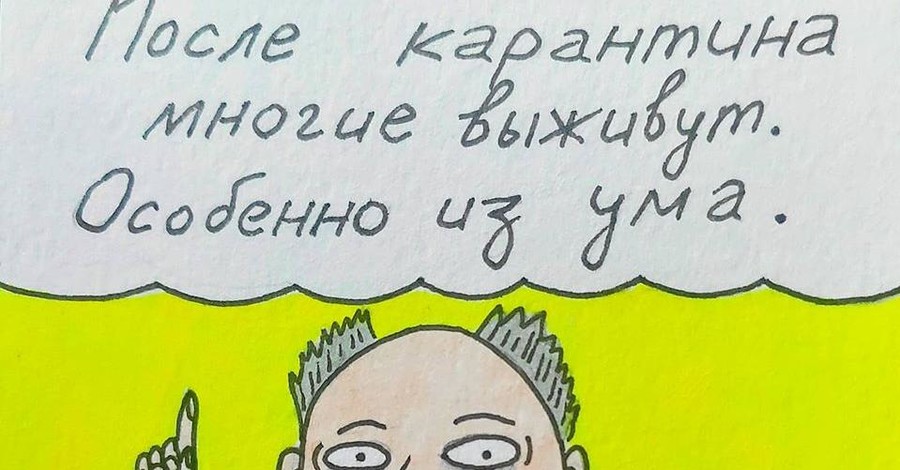 После карантина
многие выживут.
Особенно из ума.